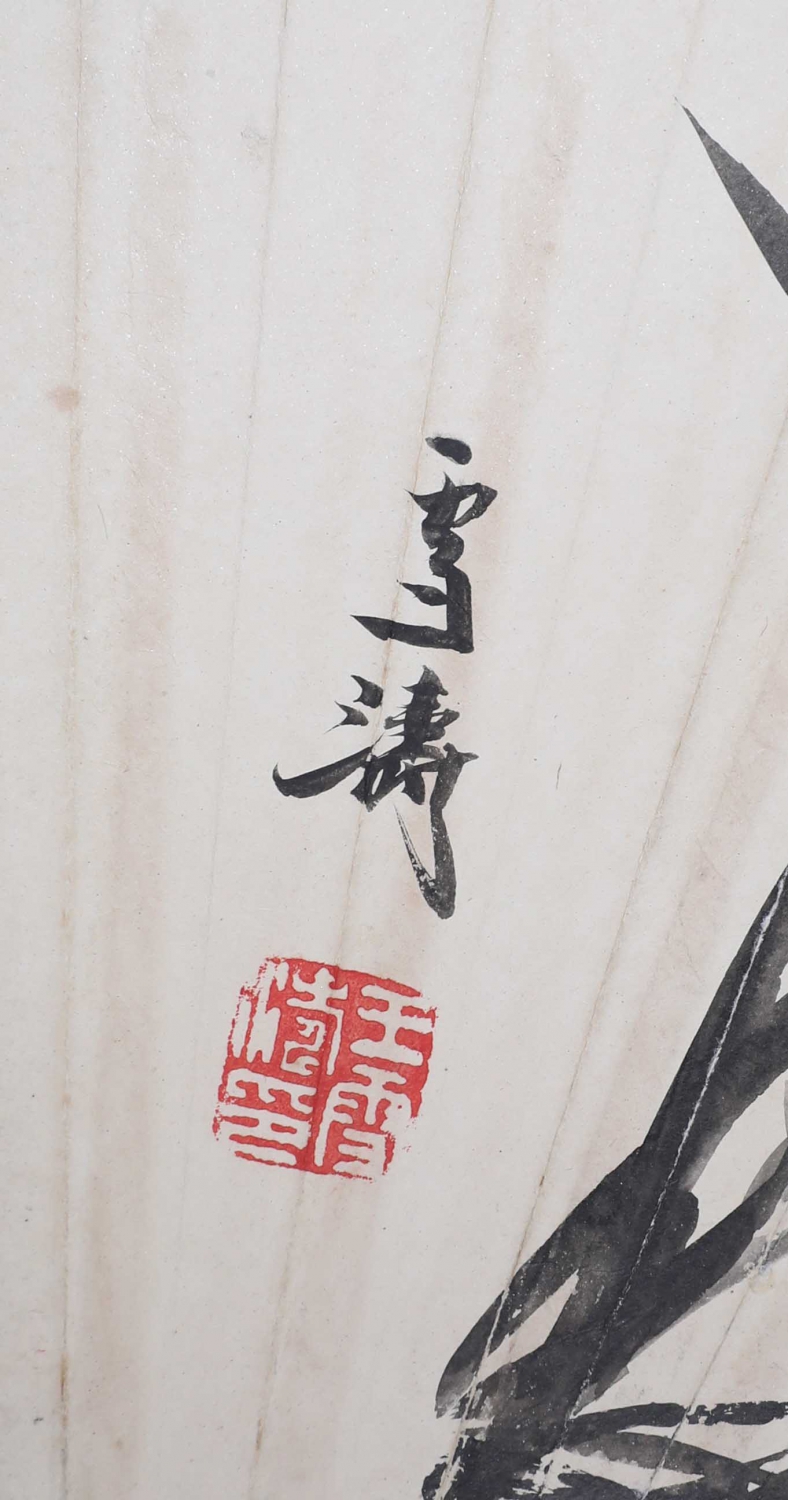 雪濤
王雪
濤印